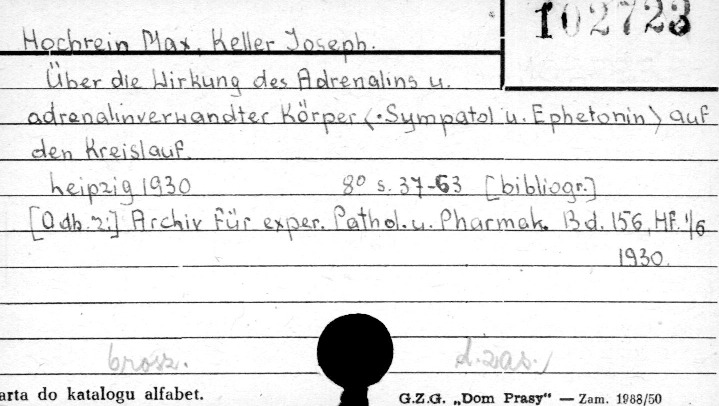 102723
Hochrein Max, Keller Joseph.
Über die Wirkung des Adrenalins u.
adrenalinverwandter Körper (·Sympatol u. Ephetonin) auf
den Kreislauf.
Leipzig 1930 8º s. 37-63 [bibliogr.]
[Odb. z:] Archiv für exper. Pathol. u. Pharmak. Bd. 156, Hf. 1/6
1930.
brosz. d.zas./
arta do katalogu alfabet. G.Z.G. „Dom Prasy" — Zam. 1988/50